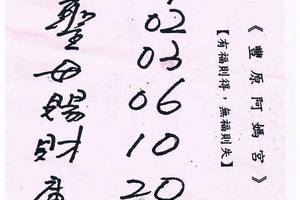 《豐原阿媽宮》
【有福則得，無福則失】
02
03
06
10
20
聖母賜財